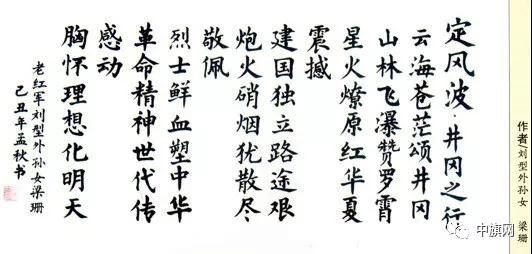 定风波·井冈之行
云海苍茫颂井冈
山林飞瀑赞罗霄
星火燎原红华夏
震撼
建国独立路途艰
炮火硝烟犹散尽
敬佩
烈士鲜血塑中华
革命精神世代传
感动
胸怀理想化明天
老红军刘型外孙女梁珊
己丑年孟秋书
作者/刘型外孙女 梁珊
中旗网